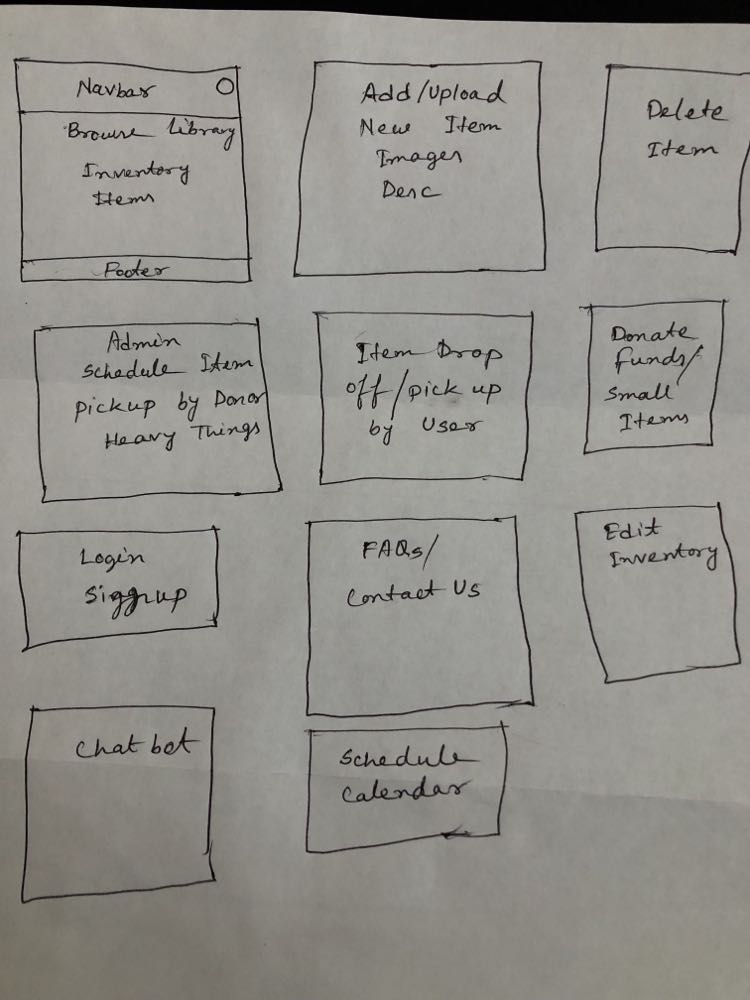 Navbar
Browse Library
Inventory
Items
Footer
Add/Upload
New Item
Images
Desc
Delete
Item
Admin
Schedule Item
pickup by Donor
Heavy Things
Item Drop
off/pick up
by User
Donate
Funds/
Small
Items
Login
Siggnup
FAQs/
Contact Us
Edit
Inventory
Chat bot
Schedule
Calendar